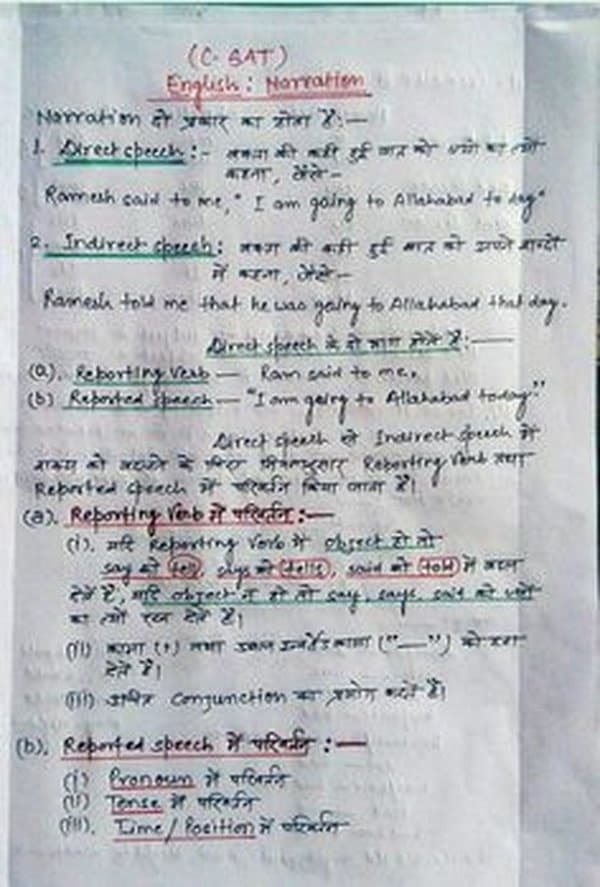 (C-SAT)
English: Narration
Narration दो प्रकार का होता है:—
1. Direct speech:- वक्ता की कही हुई बात को ज्यों का त्यों
कहना, जैसे—
Ramesh said to me, "I am going to Allahabad today"
2. Indirect speech: वक्ता की कही हुई बात को अपने शब्दों
में कहना, जैसे—
Ramesh told me that he was going to Allahabad that day.
Direct speech के दो भाग होते हैं:—
(a). Reporting Verb — Ram said to me,
(b) Reported speech — "I am going to Allahabad today."
Direct speech से Indirect speech में
वाक्य को बदलने के लिए निम्नानुसार Reporting Verb तथा
Reported speech में परिवर्तन किया जाता है।
(a). Reporting Verb में परिवर्तन:—
(i). यदि Reporting Verb में object हो तो
say को tell, says को tells, said को told में बदल
देते हैं, यदि object न हो तो say, says, said को ज्यों
का त्यों रख देते हैं।
(ii) कामा (,) तथा डबल इन्वर्टेड कामा ("—") को हटा
देते हैं।
(iii) उचित conjunction का प्रयोग करते हैं।
(b). Reported speech में परिवर्तन:—
(i) Pronoun में परिवर्तन
(ii) Tense में परिवर्तन
(iii). Time/Position में परिवर्तन